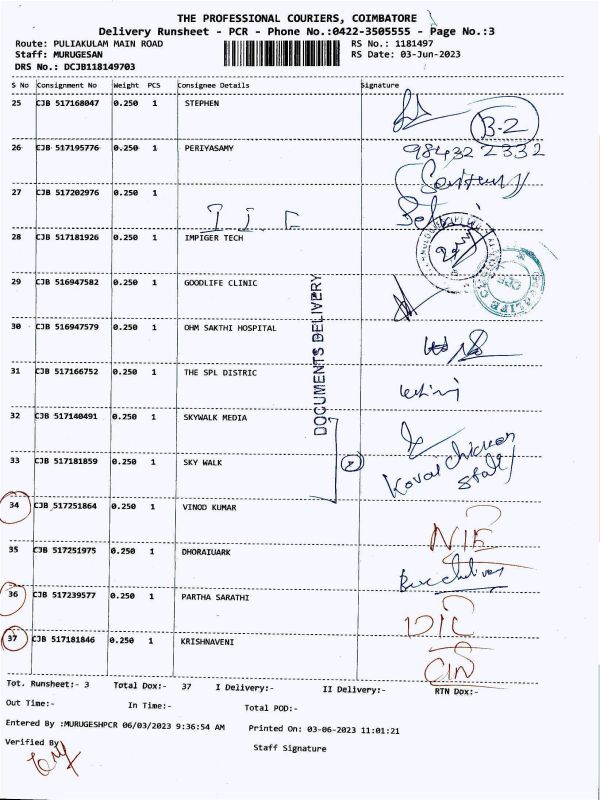 THE PROFESSIONAL COURIERS, COIMBATORE
Delivery Runsheet - PCR - Phone No.:0422-3505555 - Page No.:3
Route: PULIAKULAM MAIN ROAD RS No.: 1181497
Staff: MURUGESAN RS Date: 03-Jun-2023
DRS No.: DCJB118149703
S No Consignment No Weight PCS Consignee Details Signature
25 CJB 517168047 0.250 1 STEPHEN
B-2
26 CJB 517195776 0.250 1 PERIYASAMY 984322 2332
27 CJB 517202976 0.250 1
28 CJB 517181926 0.250 1 IMPIGER TECH
29 CJB 516947582 0.250 1 GOODLIFE CLINIC
30 CJB 516947579 0.250 1 OHM SAKTHI HOSPITAL
DOCUMENTS DELIVERY
31 CJB 517166752 0.250 1 THE SPL DISTRIC
32 CJB 517140491 0.250 1 SKYWALK MEDIA
33 CJB 517181859 0.250 1 SKY WALK 2 Kovai Chicken
Stall
34 CJB 517251864 0.250 1 VINOD KUMAR
35 CJB 517251975 0.250 1 DHORAIUARK
36 CJB 517239577 0.250 1 PARTHA SARATHI
37 CJB 517181846 0.250 1 KRISHNAVENI
Tot. Runsheet:- 3 Total Dox:- 37 I Delivery:- II Delivery:- RTN Dox:-
Out Time:- In Time:- Total POD:-
Entered By :MURUGESHPCR 06/03/2023 9:36:54 AM Printed On: 03-06-2023 11:01:21
Verified By Staff Signature